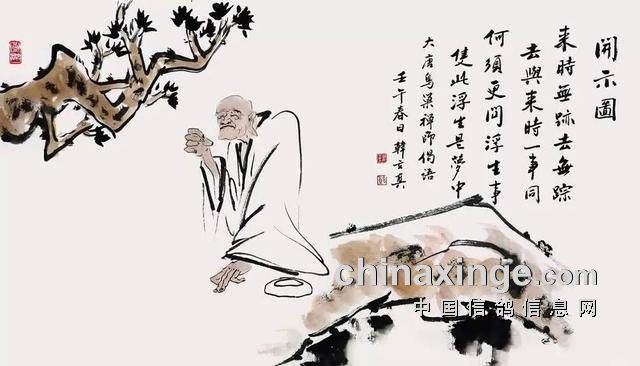 開示圖
来時無跡去無踪
去與来時一事同
何須更問浮生事
隻此浮生是夢中
大唐鸟窠禅師偈语
壬午春日韓玄真
chinaxinge.com
中国信鸽信息网